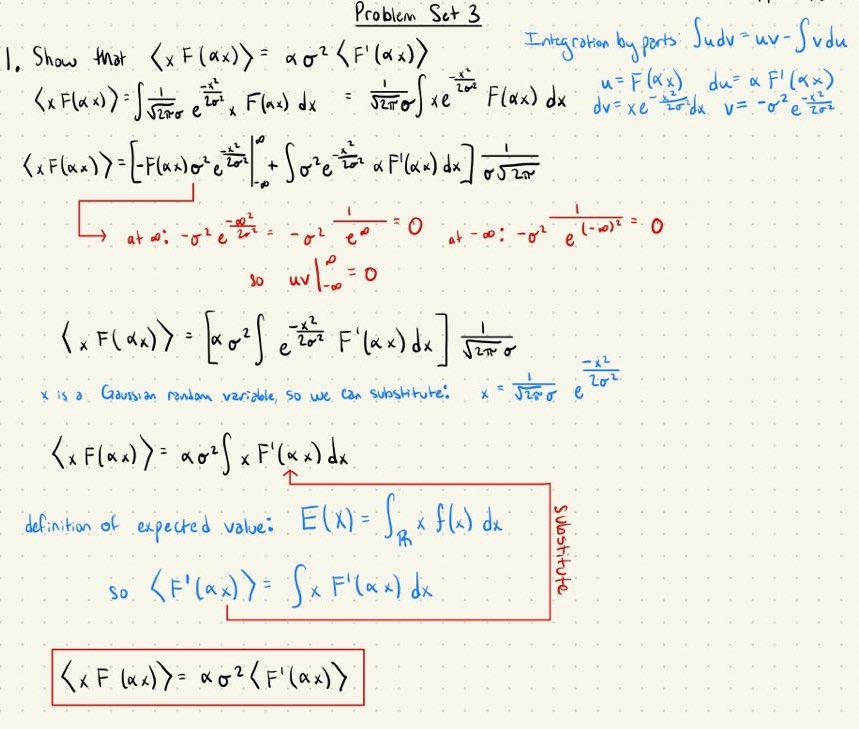 Problem Set 3
Integration by parts: ∫udv = uv - ∫vdu
1. Show that ⟨x F(αx)⟩ = α σ² ⟨F'(αx)⟩
u = F(αx) du = α F'(αx)
dv = x e^{-x²/2σ²} dx v = -σ² e^{-x²/2σ²}
⟨x F(αx)⟩ = ∫ 1/√2π σ e^{-x²/2σ²} x F(αx) dx = 1/√2π σ ∫ x e^{-x²/2σ²} F(αx) dx
⟨x F(αx)⟩ = [-F(αx) σ² e^{-x²/2σ²} |_{-∞}^{∞} + ∫ σ² e^{-x²/2σ²} α F'(αx) dx] 1/σ√2π
at ∞: -σ² e^{-∞²/2σ²} = -σ² 1/e^∞ = 0 at -∞: -σ² 1/e^{(-∞)²} = 0
so uv|_{-∞}^{∞} = 0
⟨x F(αx)⟩ = [α σ² ∫ e^{-x²/2σ²} F'(αx) dx] 1/√2π σ
x is a Gaussian random variable, so we can substitute: x = 1/√2π σ e^{-x²/2σ²}
⟨x F(αx)⟩ = α σ² ∫ x F'(αx) dx
definition of expected value: E(X) = ∫_ℝ x f(x) dx
substitute
so ⟨F'(αx)⟩ = ∫ x F'(αx) dx
⟨x F (αx)⟩ = α σ² ⟨F'(αx)⟩